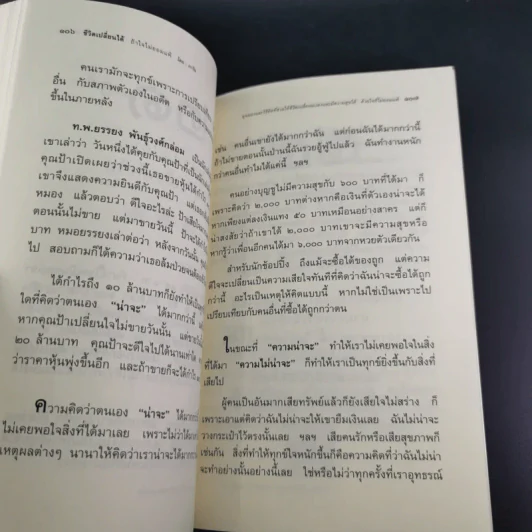 ๑๐๖ ชีวิตเปลี่ยนได้ ถ้าใจไม่ยอมแพ้
คนเรามักจะทุกข์เพราะการเปรียบ
อื่น กับสภาพตัวเองในอดีต หรือกับความ
ขึ้นในภายหลัง
ท.พ.ยรรยง พันธุ์วงศ์กล่อม
เขาเล่าว่า วันหนึ่งได้คุยกับคุณป้าที่เป็น
คุณป้าเปิดเผยว่าช่วงนี้เธอขายหุ้นได้กำไร
เขาจึงแสดงความยินดีกับคุณป้า แต่
หมอง แล้วตอบว่า ดีใจอะไรล่ะ ป้าเสียใจ
ตอนนั้นไม่ขาย แต่มาขายวันนี้ ป้าจะได้กำไร
บาท หมอยรรยงเล่าต่อว่า หลังจากวันนั้น
ไป สอบถามก็ได้ความว่าเธอล้มป่วยจน
ได้กำไรถึง ๑๐ ล้านบาทก็ยังทำให้เป็น
ใดที่คิดว่าตนเอง “น่าจะ” ได้มากกว่านี้
หากคุณป้าเปลี่ยนใจไม่ขายวันนั้น แต่
๒๐ ล้านบาท คุณป้าจะดีใจไปได้นานเท่าใด
ว่าราคาหุ้นพุ่งขึ้นอีก และถ้าขายก็จะได้กำไร
ความคิดว่าตนเอง “น่าจะ” ได้มากกว่า
ไม่เคยพอใจสิ่งที่ได้มาเลย เพราะไม่ว่าได้มาก
เหตุผลต่างๆ นานาให้คิดว่าเราน่าจะได้มากกว่า
๑๐๗
เช่น คนอื่นเขายังได้มากกว่าฉัน แต่ก่อนฉันได้มากกว่านี้
ถ้าไม่ขายตอนนั้นป่านนี้ฉันรวยอู้ฟู่ไปแล้ว ฉันทำงานหนัก
กว่าคนอื่นทำไมได้แค่นี้ ฯลฯ
คนอย่างบุญชูไม่มีความสุขกับ ๖๐๐ บาทที่ได้มา ก็
เพราะคิดว่า ๒,๐๐๐ บาทต่างหากคือเงินที่ตัวเองน่าจะได้
หากเพียงแต่ลงเงินแทง ๕๐ บาทเหมือนอย่างสาคร แต่ก็
น่าสงสัยว่าถ้าเขาได้ ๒,๐๐๐ บาท เขาจะมีความสุขหรือ
หากรู้ว่าเพื่อนอีกคนได้มา ๖,๐๐๐ บาทจากหวยตัวเดียวกัน
สำหรับนักช้อปปิ้ง ถึงแม้จะซื้อได้ของถูก แต่ความ
ดีใจจะเปลี่ยนเป็นความเสียใจทันทีที่คิดว่าฉันน่าจะซื้อได้ถูก
กว่านี้ อะไรเป็นเหตุให้คิดแบบนี้ หากไม่ใช่เป็นเพราะไป
เปรียบเทียบกับคนอื่นที่ซื้อได้ถูกกว่าตน
ในขณะที่ “ความน่าจะ” ทำให้เราไม่เคยพอใจในสิ่ง
ที่ได้มา “ความไม่น่าจะ” ก็ทำให้เราเป็นทุกข์ยิ่งขึ้นกับสิ่งที่
เสียไป
ผู้คนเป็นอันมากเสียทรัพย์แล้วก็ยังเสียใจไม่สร่าง ก็
เพราะเอาแต่คิดว่าฉันไม่น่าจะให้เขายืมเงินเลย ฉันไม่น่าจะ
วางกระเป๋าไว้ตรงนั้นเลย ฯลฯ เสียคนรักหรือเสียสุขภาพก็
เช่นกัน สิ่งที่ทำให้ทุกข์ใจหนักขึ้นก็คือความคิดที่ว่าฉันไม่น่า
จะทำอย่างนั้นอย่างนี้เลย ใช่หรือไม่ว่าทุกครั้งที่เราอุทธรณ์